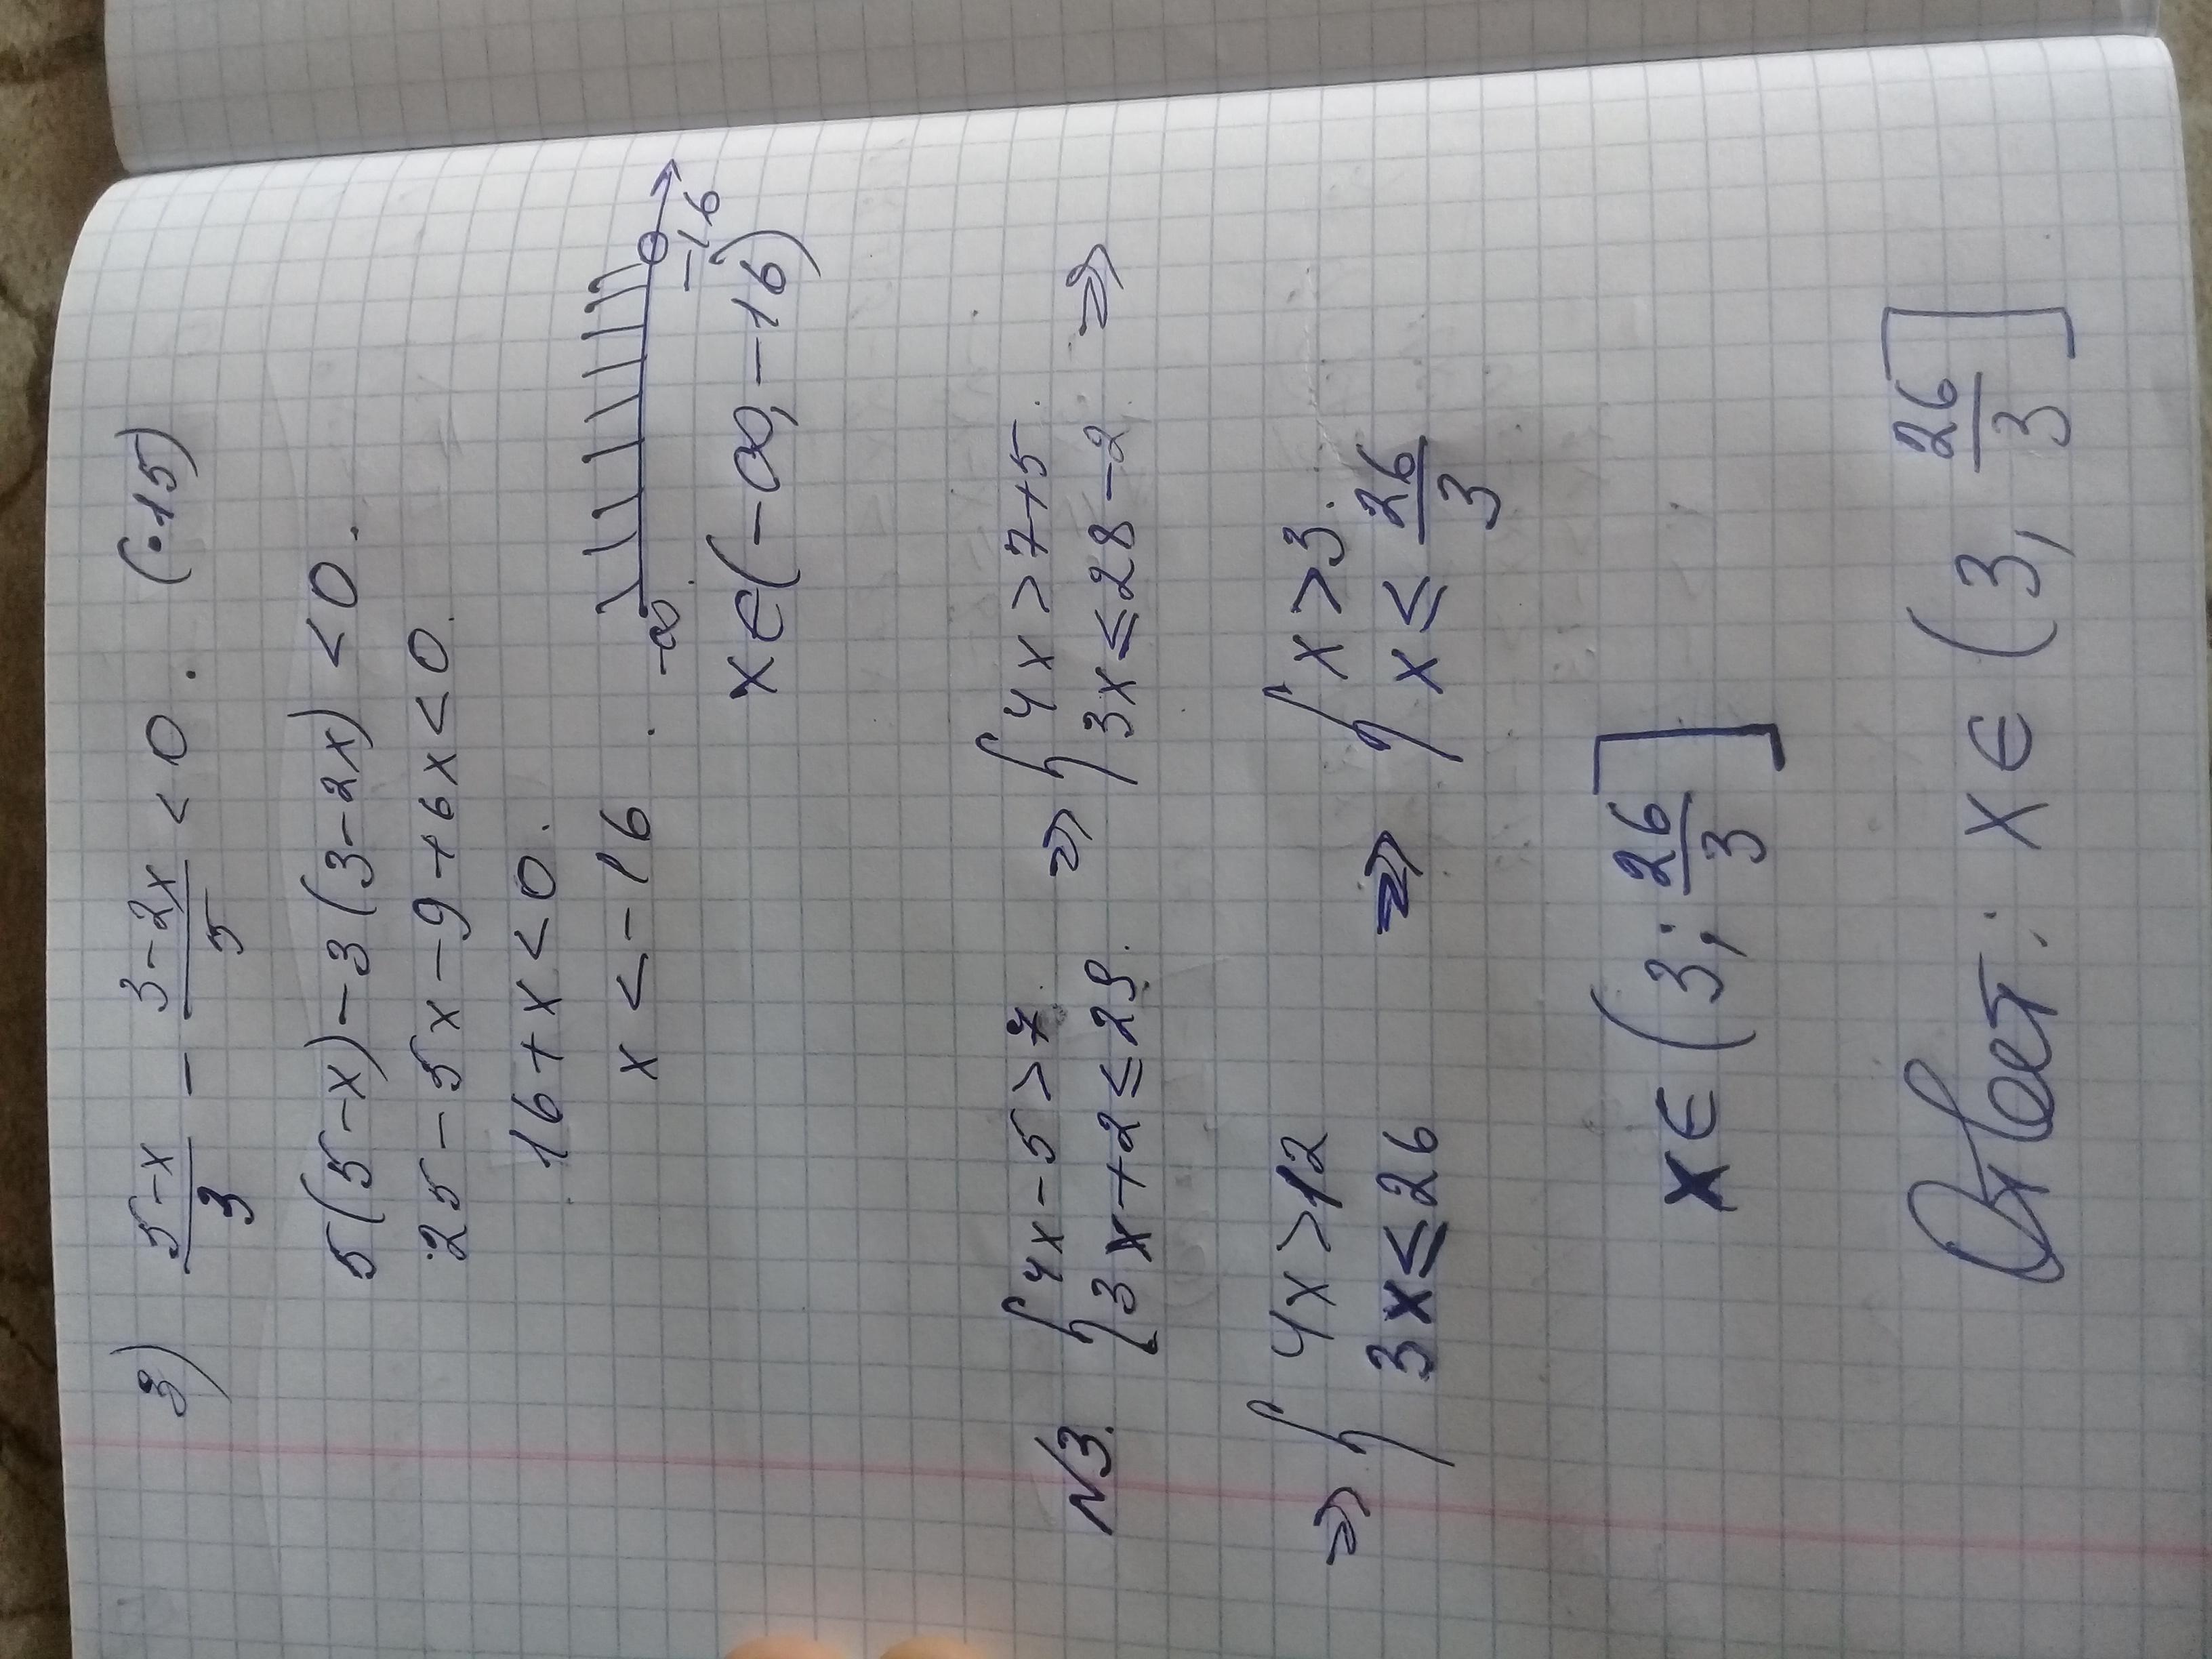 3) (5-x)/3 - (3-2x)/5 < 0. (·15)
5(5-x)-3(3-2x) < 0.
25-5x-9+6x<0.
16+x<0.
x<-16.
-∞ -16
x∈(-∞,-16)
N3. { 4x-5>7 ⇒ { 4x>7+5. ⇒
3x+2≤28. 3x≤28-2
⇒ { 4x>12 ⇒ { x>3.
3x≤26 x≤ 26/3
x∈(3; 26/3]
Ответ: x∈(3, 26/3]